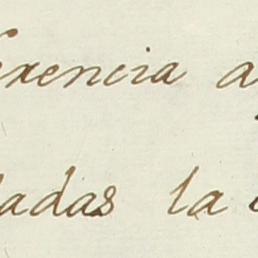 erencia a
ladas la